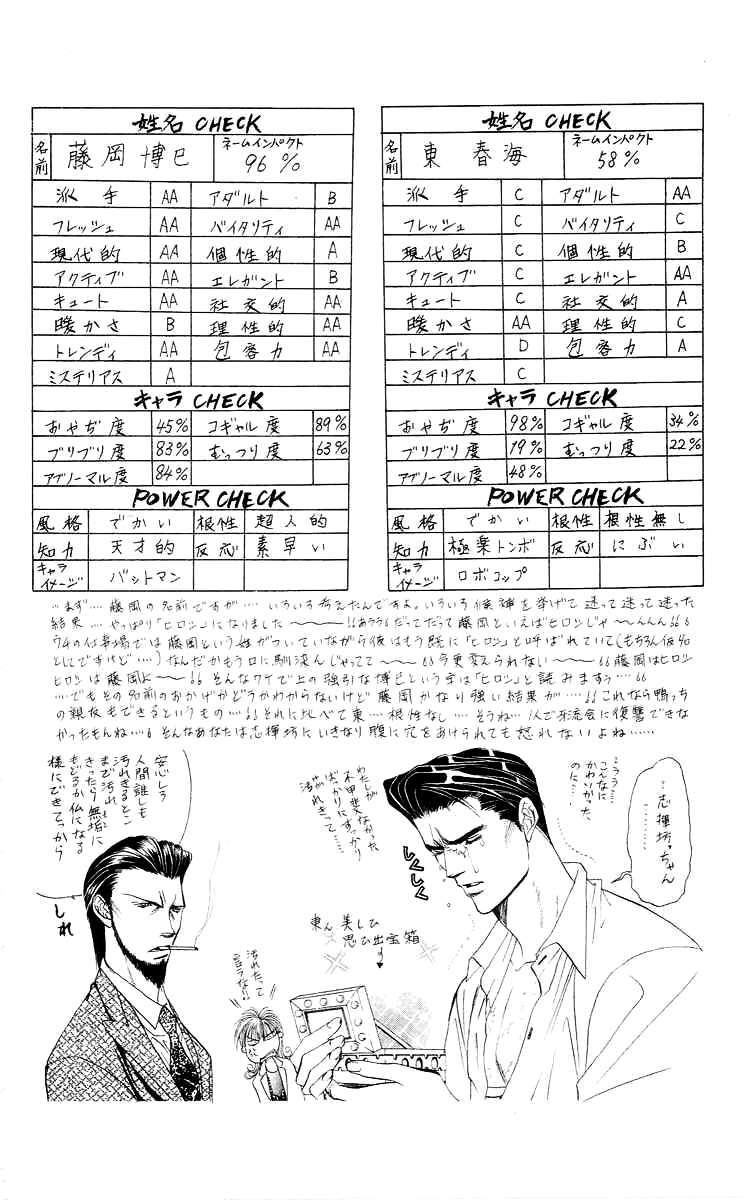 姓名 CHECK
名前 藤岡博巳 ネームインパクト 96%
派手 AA アダルト B
フレッシュ AA バイタリティ AA
現代的 AA 個性的 A
アクティブ AA エレガント B
キュート AA 社交的 AA
暖かさ B 理性的 AA
トレンディ AA 包容力 AA
ミステリアス A
キャラ CHECK
おやぢ度 45% コギャル度 89%
ブリブリ度 83% むっつり度 63%
アブノーマル度 84%
POWER CHECK
風格 でかい 根性 超人的
知力 天才的 反応 素早い
キャライメージ バットマン
姓名 CHECK
名前 東春海 ネームインパクト 58%
派手 C アダルト AA
フレッシュ C バイタリティ C
現代的 C 個性的 B
アクティブ C エレガント AA
キュート C 社交的 A
暖かさ AA 理性的 C
トレンディ D 包容力 A
ミステリアス C
キャラ CHECK
おやぢ度 98% コギャル度 34%
ブリブリ度 19% むっつり度 22%
アブノーマル度 48%
POWER CHECK
風格 でかい 根性 根性無し
知力 極楽トンボ 反応 にぶい
キャライメージ ロボコップ
…まず…藤岡の名前ですが…いろいろ考えたんですよ。いろいろ候補を挙げて迷って迷って迷った
結果…やっぱり「ヒロシ」になりました〜〜〜あうううだってだって藤岡といえばヒロシじゃ〜んんん
ウチの仕事場では藤岡という姓がついていながら彼はもう既に「ヒロシ」と呼ばれていて(もちろん仮名
としてですけど…)なんだかもう口に馴染んじゃってて〜〜今更変えられない〜〜〜藤岡はヒロシ
ヒロシは藤岡よ〜 そんなワケで上の強引な博巳という字は「ヒロシ」と読みますぅ…
…でもその名前のおかげかどうかわからないけど藤岡かなり強い結果が… これなら鴨っち
の親友もできるというもの… それに比べて東…根性なし…そうね…1人で牙流会に復讐できな
かったもんね… そんなあなたは志揮坊にいきなり腹に穴をあけられても怒れないよね……
…志揮坊っちゃん
…ううう…
こんなに
かわいかった
のに…
わたしが
不甲斐なかった
ばっかりにすっかり
汚がれきって……
しくしく
東ん美しひ
思ひ出宝箱
汚れたって
言うな!!
安心しろ
人間誰しも
汚れきるとこ
まで汚れ
きったら無垢に
もどるか仏になる
様にできてっから
しれ